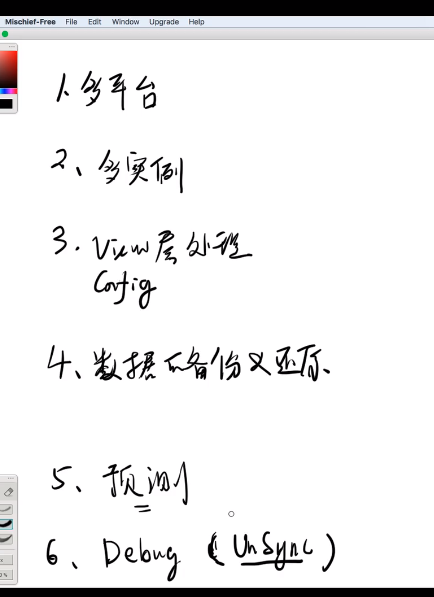 Mischief-Free File Edit Window Upgrade Help
1、多平台
2、多实例
3. View层处理
Config
4、数据的备份及还原、
5、预测
6、Debug (UnSync)